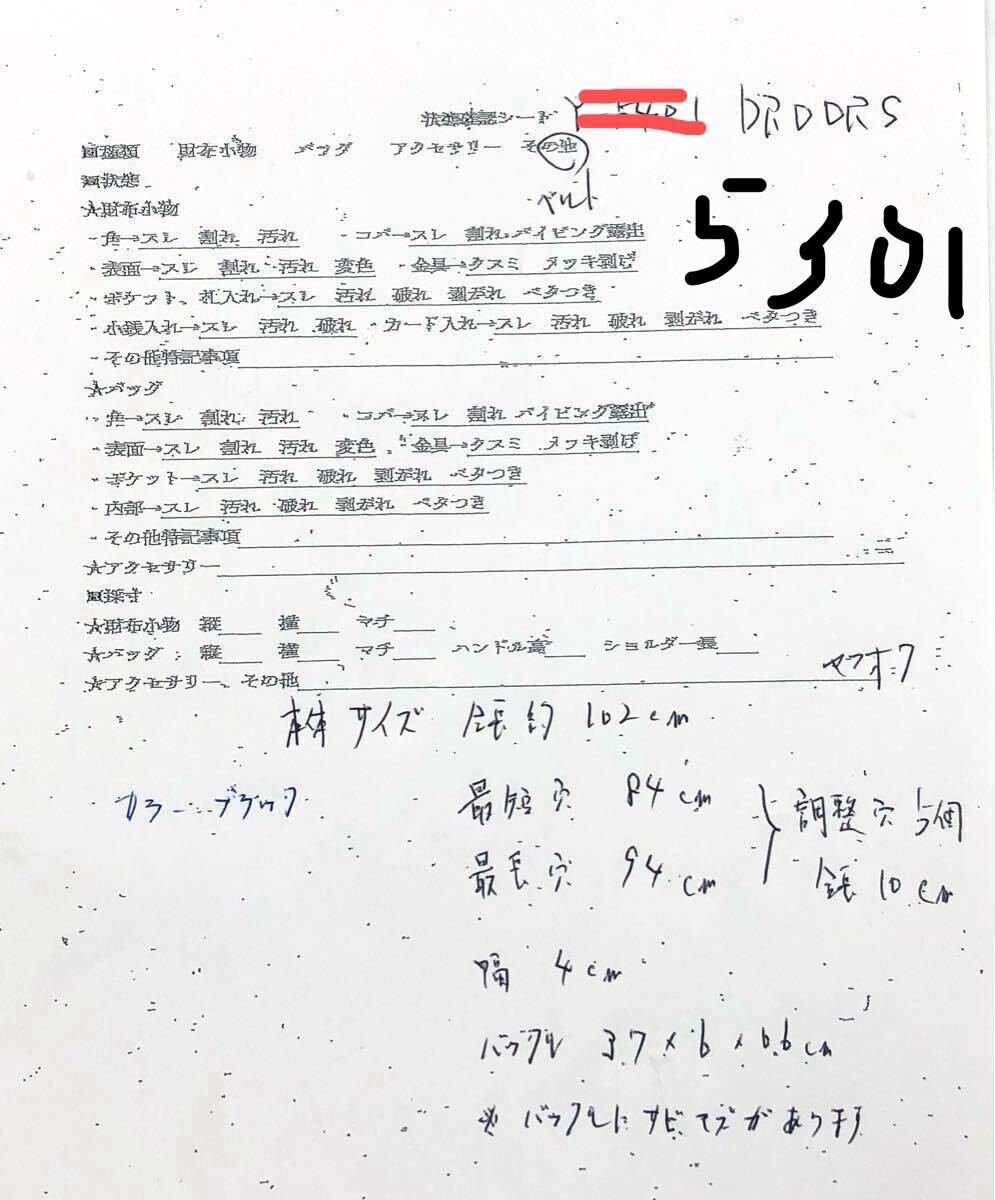 状態確認シート Y 5401 DRDDRS
回種類 財布小物 バッグ アクセサリー その他
5301
回状態 ベルト
★財布小物
・角→スレ 割れ 汚れ ・コバ→スレ 割れ パイピング露出
・表面→スレ 割れ 汚れ 変色 ・金具→クスミ メッキ剥げ
・ポケット、札入れ→スレ 汚れ 破れ 剥がれ ベタつき
・小銭入れ→スレ 汚れ 破れ ・カード入れ→スレ 汚れ 破れ 剥がれ ベタつき
・その他特記事項
★バッグ
・角→スレ 割れ 汚れ ・コバ→スレ 割れ パイピング露出
・表面→スレ 割れ 汚れ 変色 ・金具→クスミ メッキ剥げ
・ポケット→スレ 汚れ 破れ 剥がれ ベタつき
・内部→スレ 汚れ 破れ 剥がれ ベタつき
・その他特記事項
★アクセサリー
回採寸
★財布小物 縦 横 マチ
★バッグ 縦 横 マチ ハンドル高 ショルダー長
★アクセサリー、その他 ヤフオク
本体サイズ 全長約 102cm
カラー ブラック 最短穴 84cm 調整穴 5個
最長穴 94cm 全長10cm
幅 4cm
バックル 3.7×6×0.6cm
※バックルにサビ キズがあります